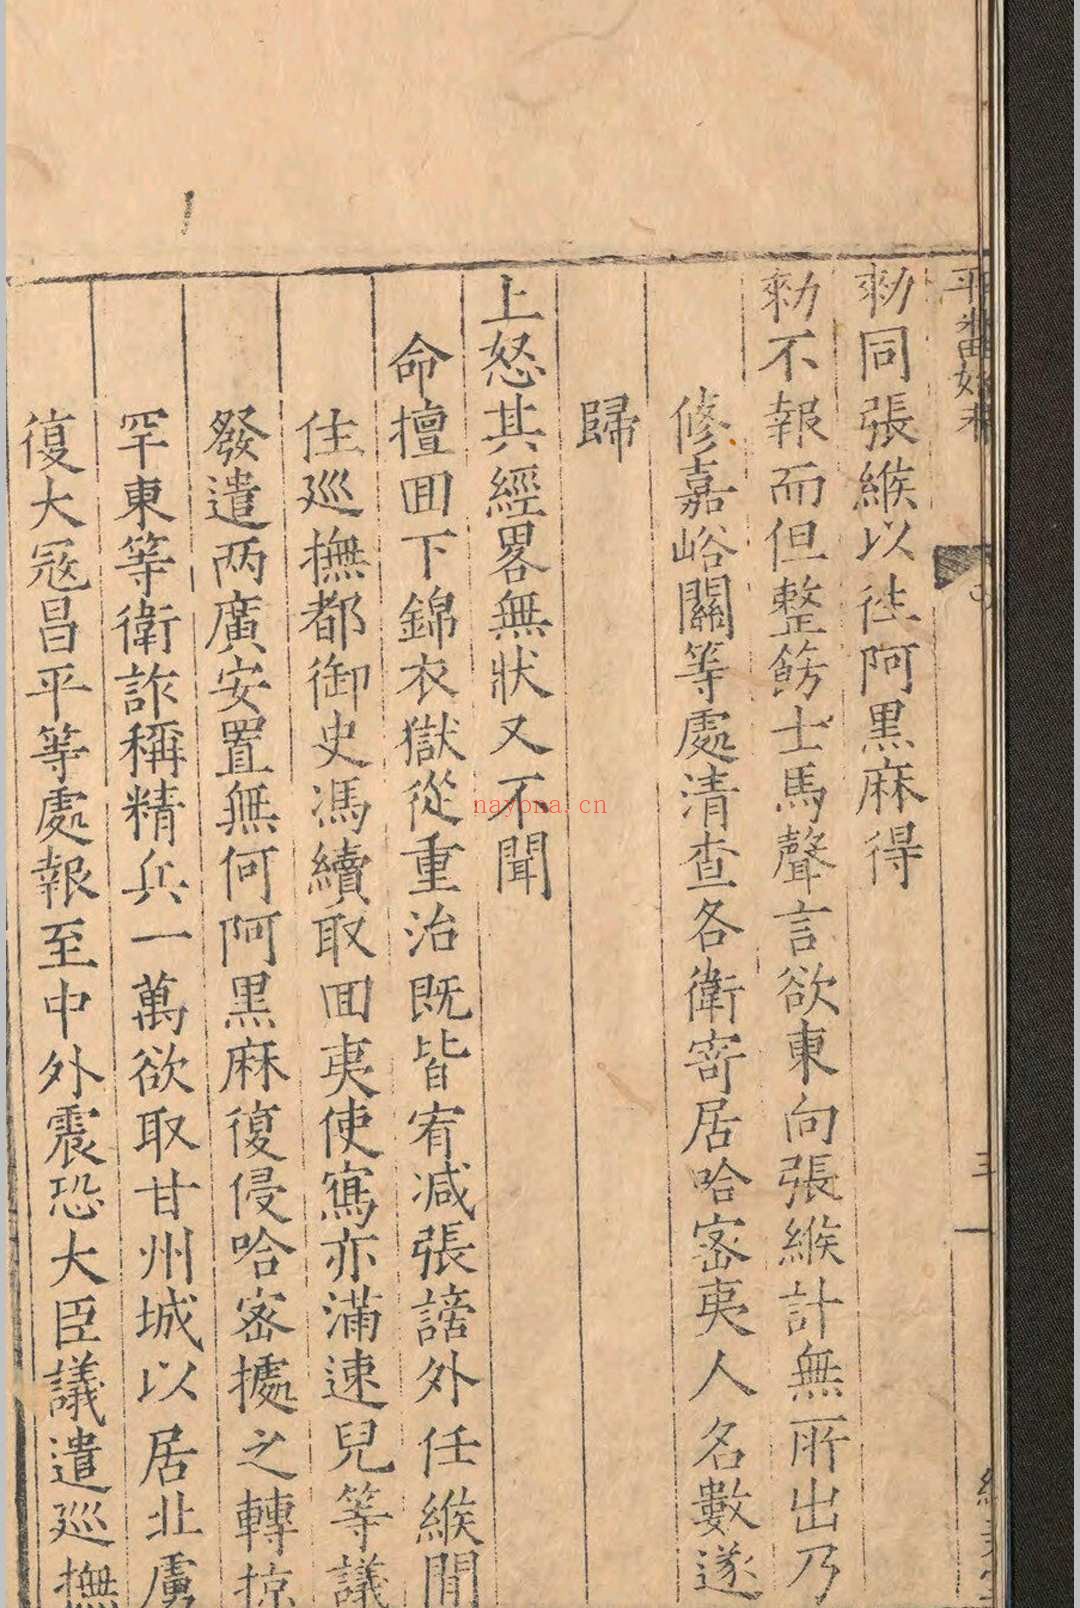 平番始末
三
勑同張緱以徃阿黒麻得
勑不報而但整飭士馬聲言欲東向張緱計無所出乃
修嘉峪關等處清查各衛寄居哈密夷人名數遂
歸
上怒其經畧無狀又不聞
命擅囬下錦衣獄從重治既皆宥减張謗外任緱閒
住巡撫都御史馮續取囬夷使寫亦滿速兒等議
發遣两廣安置無何阿黒麻復侵哈密據之轉掠
罕東等衛詐稱精兵一萬欲取甘州城以居北虜
復大冦昌平等處報至中外震恐大臣議遣巡撫
nayona.cn